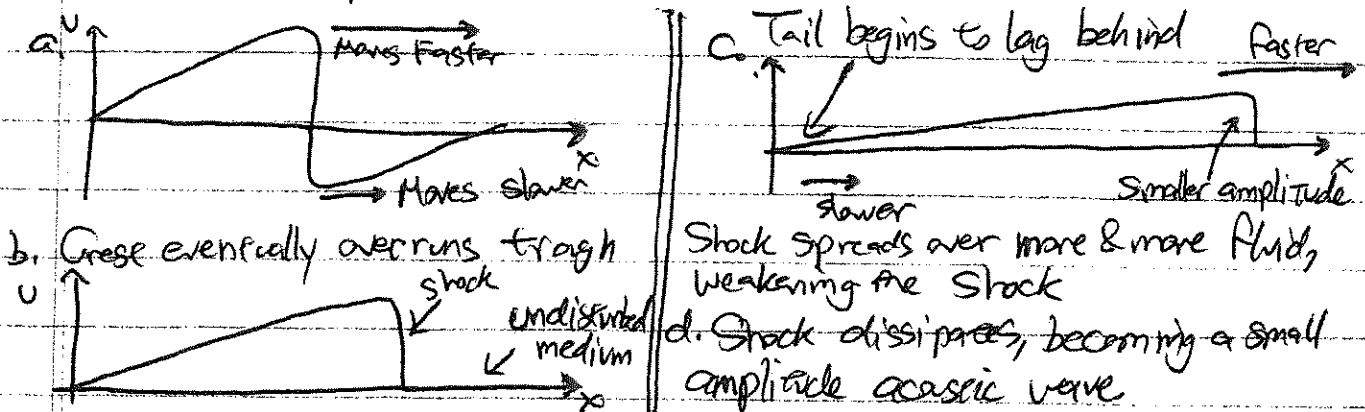 a. U
Moves Faster
x
Moves slower
b. Crest eventually overruns trough
U
shock
undisturbed
medium
x
c. Tail begins to lag behind
faster
x
slower
smaller amplitude
Shock spreads over more & more fluid,
weakening the shock
d. Shock dissipates, becoming a small
amplitude acoustic wave.